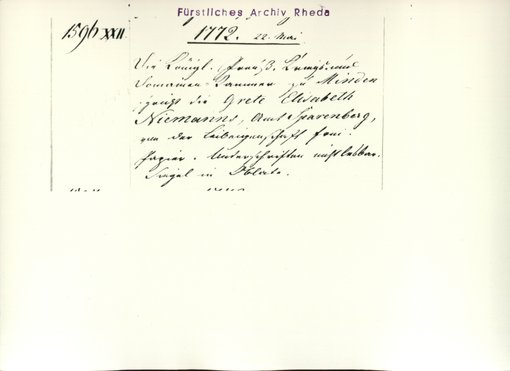 Fürstliches Archiv Rheda
1596 XXII
1772. 22. Mai
Die Königl. Preuß. Kriegs und
Domainen Kammer zu Minden
die Grete Elisabeth
Niemanns, Amt Sparenberg,
von der Leibeigenschaft frei.
Papier. Unterschriften nicht lesbar.
Siegel in Oblate.